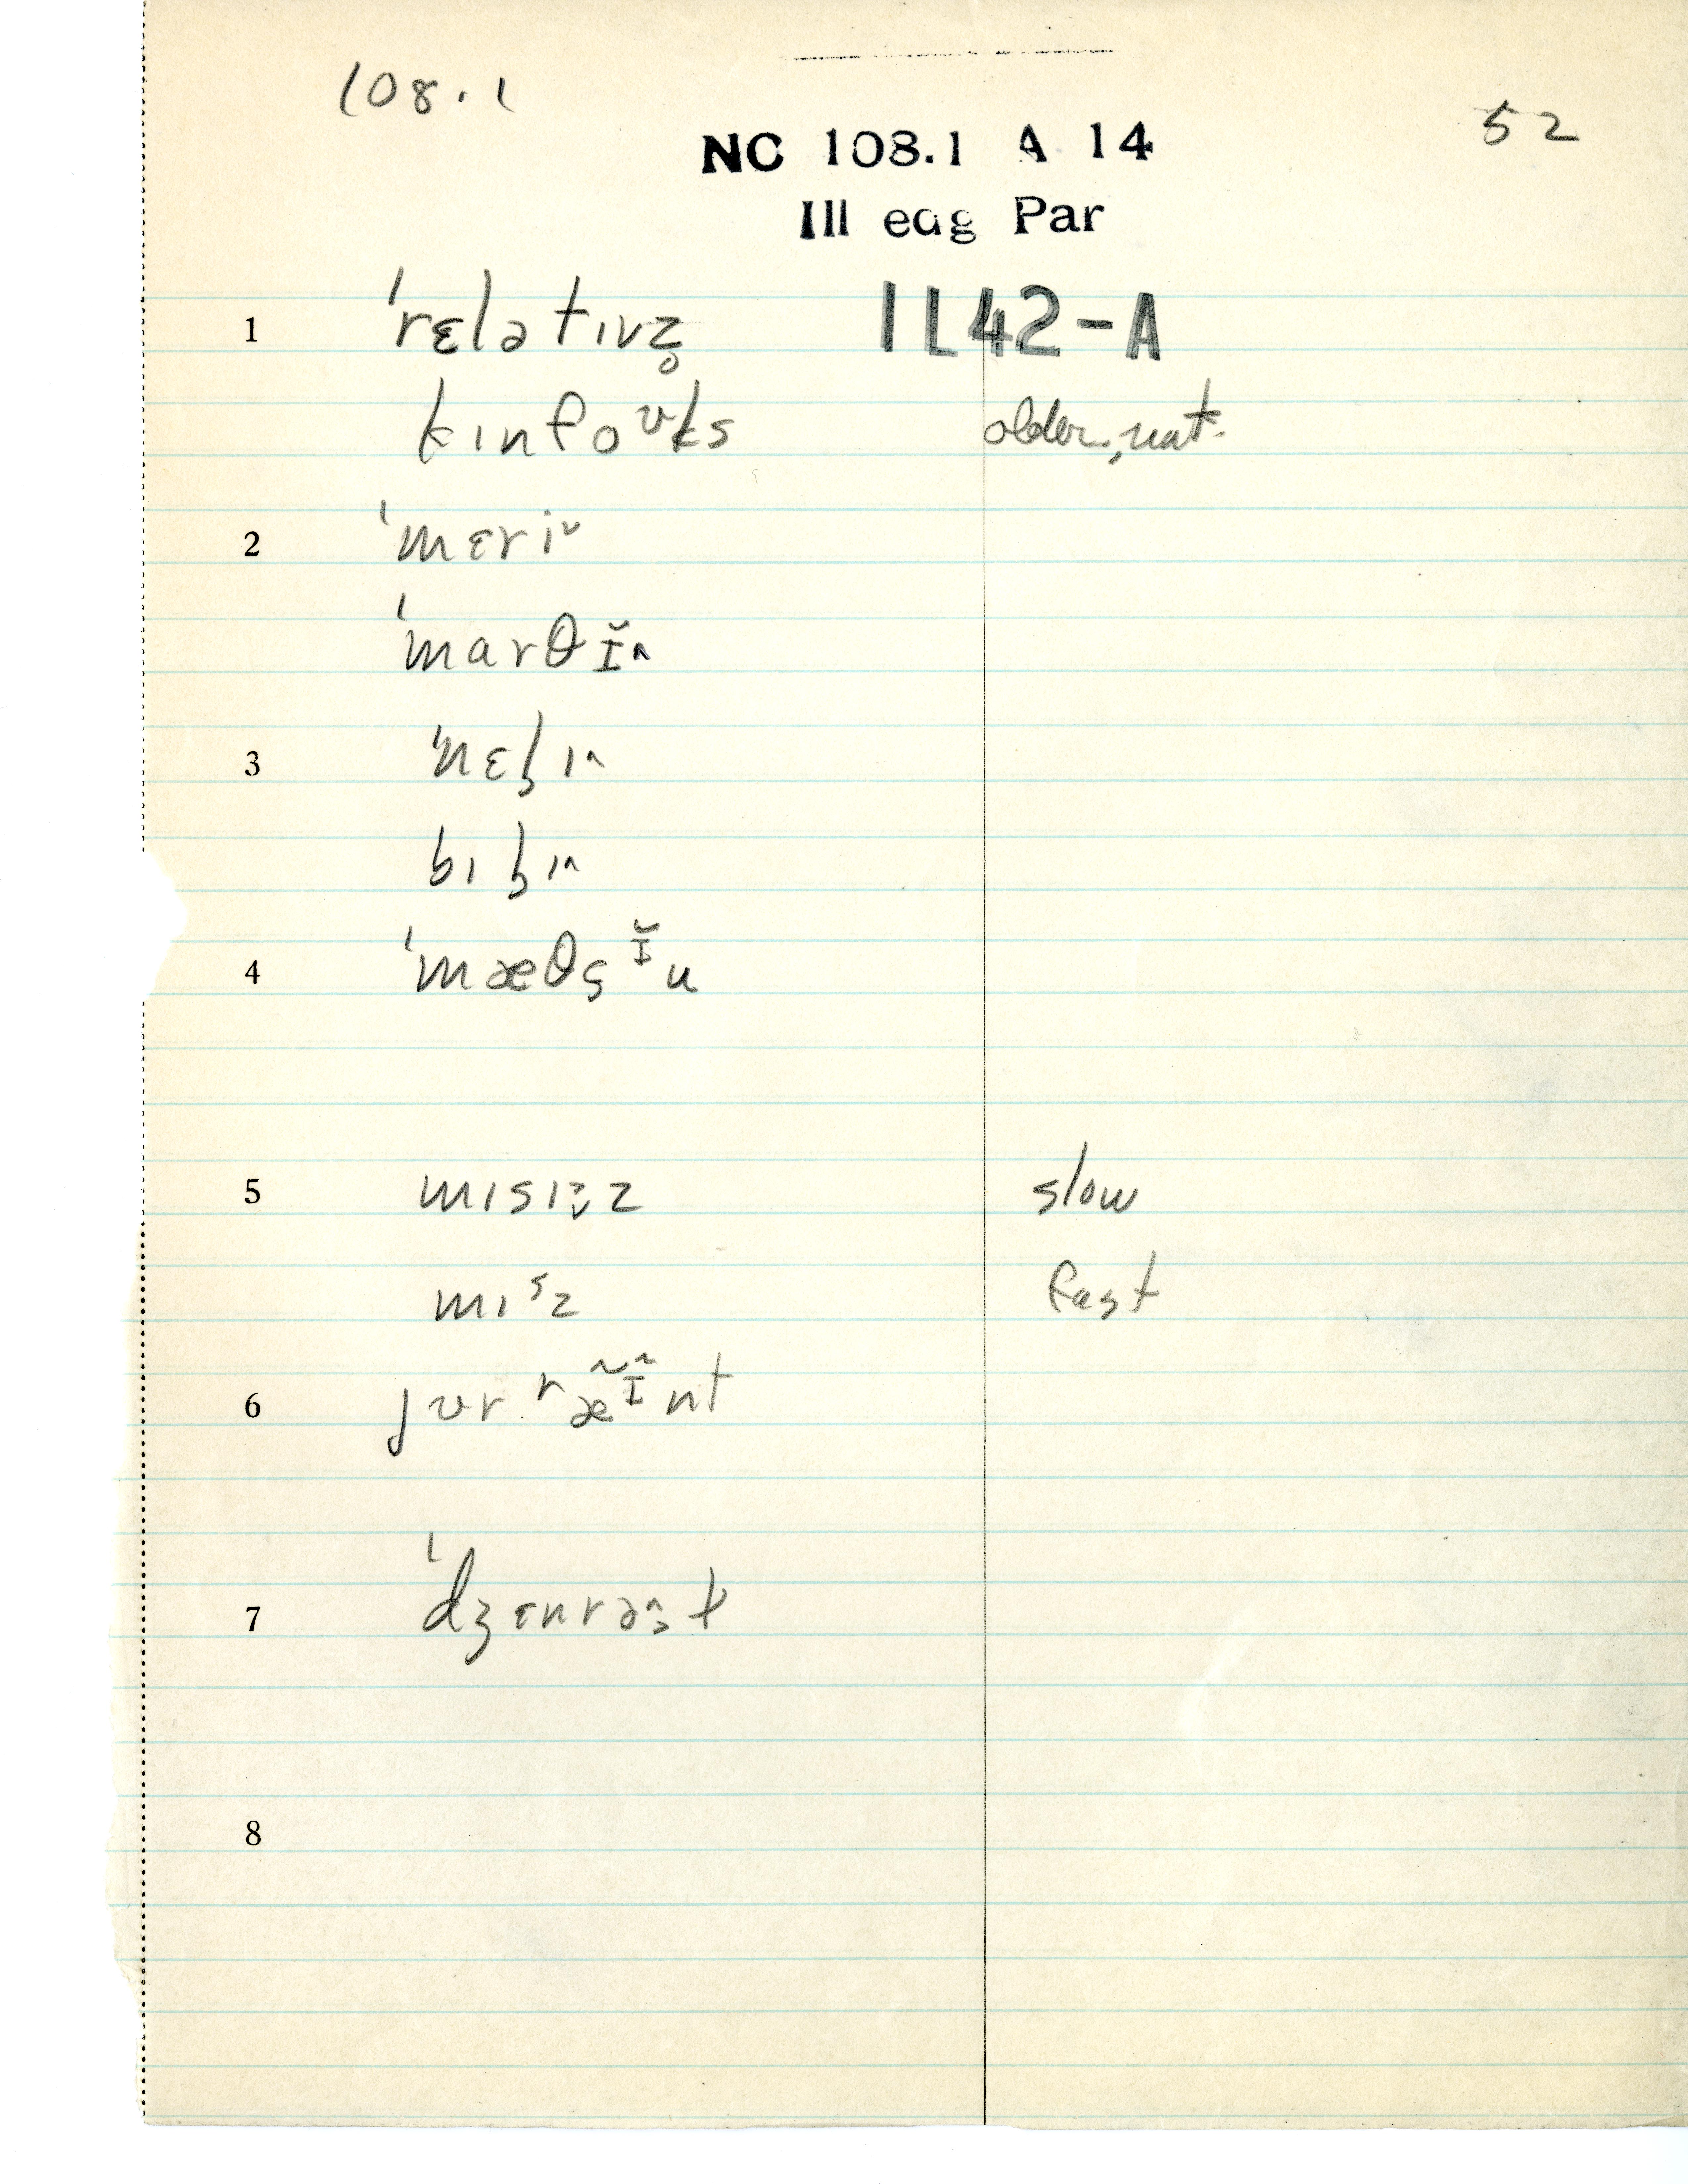 108.1
52
NC 108.1 A 14
Ill edg Par
1 ˈrɛlətɪvz̥ IL42-A
kɪnfoᶷks older, nat.
2 ˈmɛriᵛ
ˈmarθɪ̆^
3 ˈnɛl̬ɪ^
bɪl̬ɪ^
4 ˈmæθs̬ ᴵ̆u
5 mɪsɪz̬z slow
mɪˢz fast
6 jʊr ʳæ̃ᴵ̃nt
7 ˈdʒɛnrə^s̬t
8